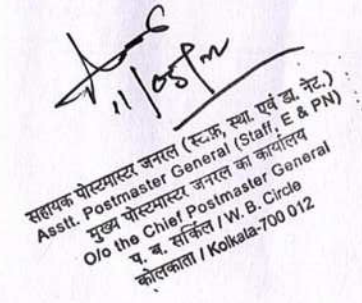 11/05/22
सहायक पोस्टमास्टर जनरल (स्ट.फ़, स्था. एवं डा. नेट.)
Asstt. Postmaster General (Staff, E & PN)
मुख्य पोस्टमास्टर जनरल का कार्यालय
O/o the Chief Postmaster General
प. ब. सर्किल / W. B. Circle
कोलकाता / Kolkata-700 012